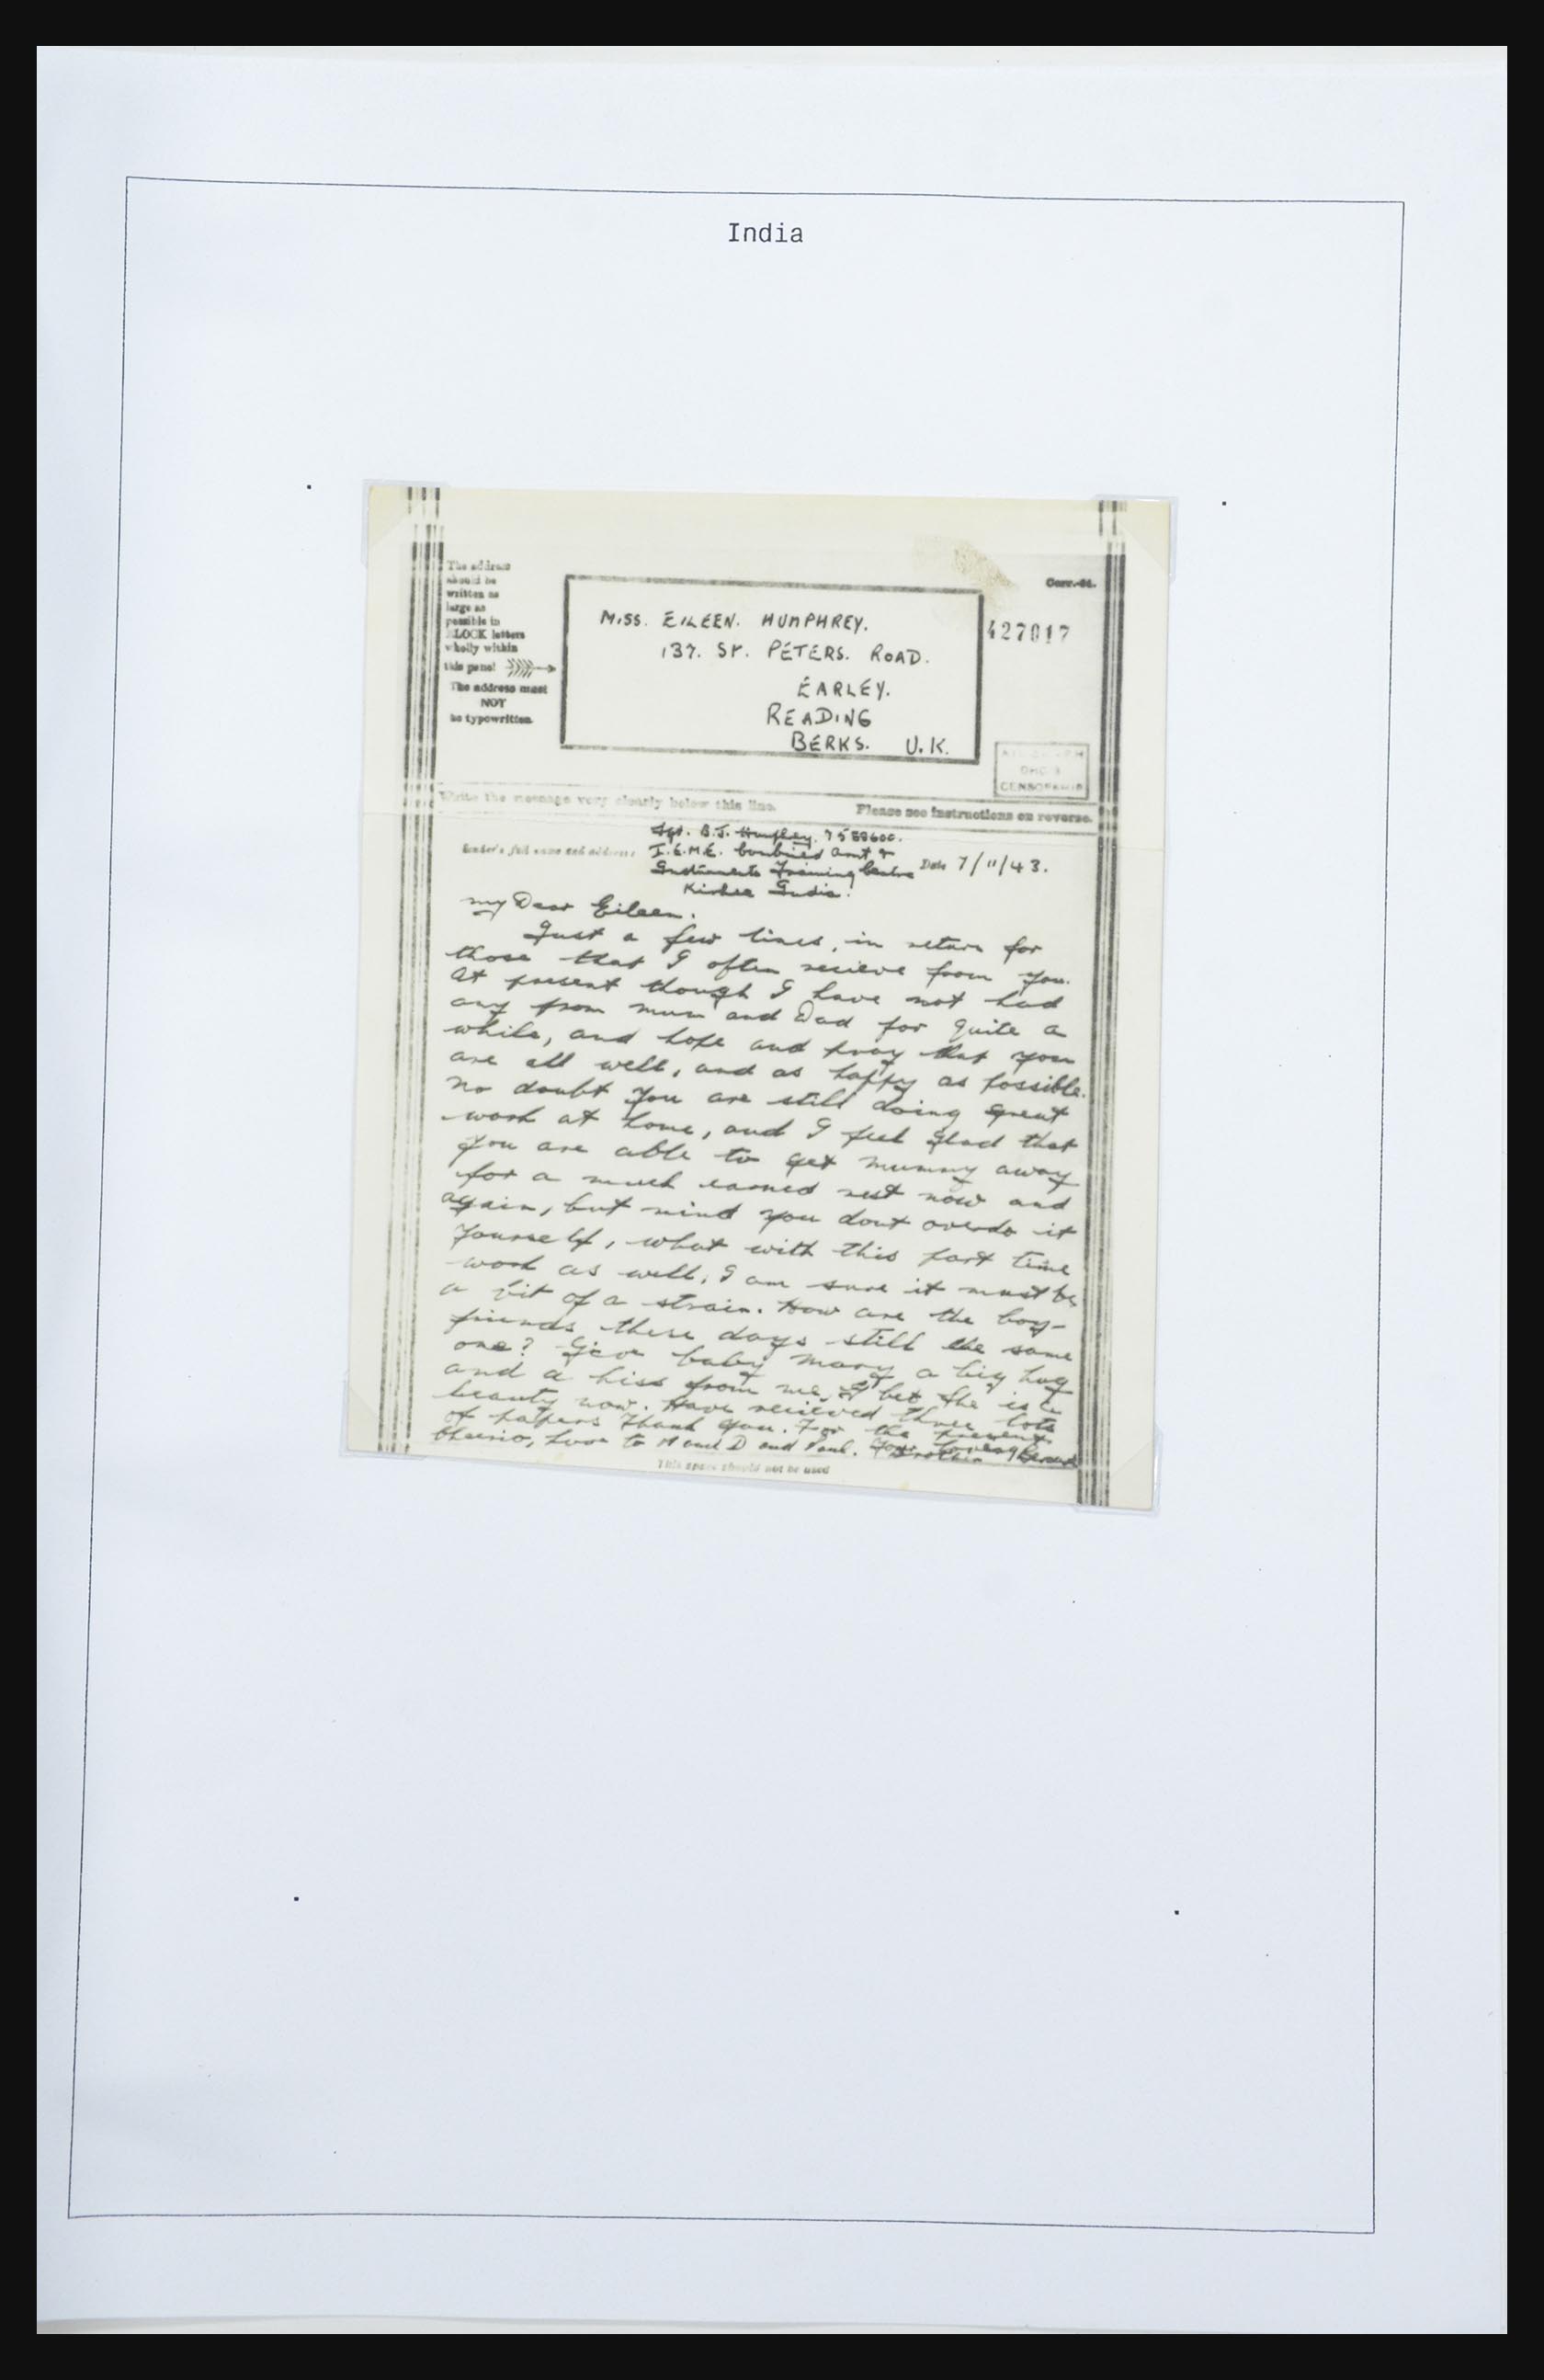 India
The address
should be
written as
large as
possible in
BLOCK letters
wholly within
this panel
The address must
NOT
be typewritten.
MISS. EILEEN. HUMPHREY.
137. ST. PETERS. ROAD.
EARLEY.
READING
BERKS. U.K.
427017
CENSORSHIP
Write the message very clearly below this line.
Please see instructions on reverse.
Sender's full name and address:
Sgt. B.J. Humphrey. 7588600.
I.E.M.E. Combined Armt &
Instruments Training Centre
Kirkee India.
Date 7/11/43.
My Dear Eileen.
Just a few lines, in return for
those that I often recieve from you.
At present though I have not had
any from mum and Dad for quite a
while, and hope and pray that you
are all well, and as happy as possible.
No doubt you are still doing great
work at home, and I feel glad that
you are able to get mummy away
for a much earned rest now and
again, but mind you dont overdo it
yourself, what with this part time
work as well, I am sure it must be
a bit of a strain. How are the boy-
friends these days still the same
one? Give baby Mary a big hug
and a kiss from me, I bet she is a
beauty now. Have recieved three lots
of papers Thank you. For the present
Cheerio, Love to M and D and Paul. Your loving
Brother Bernard
This space should not be used